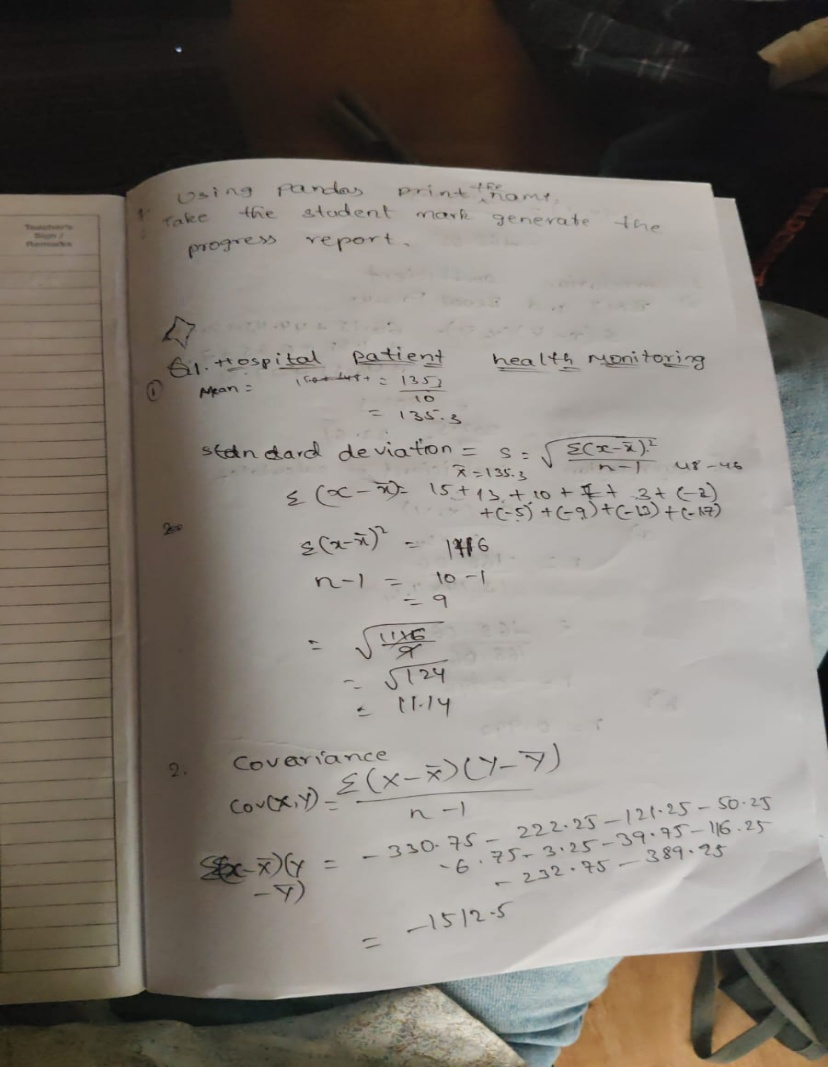 Teacher's
Sign /
Remarks
1. Using pandas print the name,
Take the student mark generate the
progress report.
Q1. Hospital patient health Monitoring
① Mean = = 1353
10
= 135.3
standard deviation = s = √ Σ(x-x̄)²
n-1
48-46
x̄ = 135.3
Σ(x-x̄) = 15+13+10+ + 3+(-2)
+(-5)+(-9)+(-12)+(-17)
Σ(x-x̄)² = 1116
n-1 = 10-1
= 9
= √ 1116
9
= √124
= 11.14
2. Covariance
Cov(x,y) = Σ(x-x̄)(y-ȳ)
n-1
(x-x̄)(y
-ȳ)
= -330.75 - 222.25 - 121.25 - 50.25
-6.75 - 3.25 - 39.75 - 116.25
- 232.75 - 389.25
= -1512.5